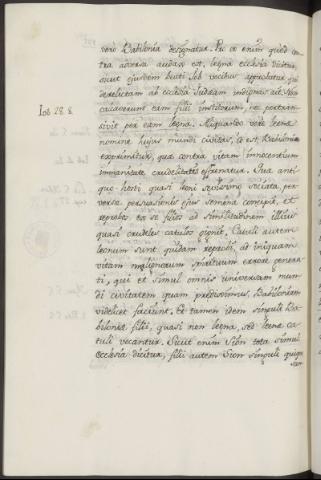 vero Babilonia designatur. Pro eo enim quod con
tra adversa audax est, leena ecclesia dicitur,
sicut ejusdem beati Iob vocibus approbatur qui
derelictam ab ecclesia Iudæam indigitans ait: Non
Iob 28. 8.
calcaverunt eam filii institorum, nec pertran-
sivit per eam leæna. Aliquando vero leena
nomine hujus mundi civitas, id est, Babilonia
exprimitur, quæ contra vitam innocentium
immanitate crudelitatis efferatur. Quæ anti
quo hosti quasi leoni sævissimo sociata, per
versæ persuasionis ejus semina concipit, et
reprobos ex se filios ad similitudinem illius
quasi crudeles catulos gignit. Catuli autem
leonum sunt quidam reprobi, ad iniquam
vitam malignorum spirituum errore genera
ti, qui et simul omnes universam mun
di civitatem quam prædiximus, Babiloniam
videlicet faciunt. Et tamen idem singuli Ba-
biloniæ filii, quasi non leena, sed leenæ ca-
tuli vocantur. Sicut enim Sion tota simul
Ecclesia dicitur, filii autem Sion singuli quiqe